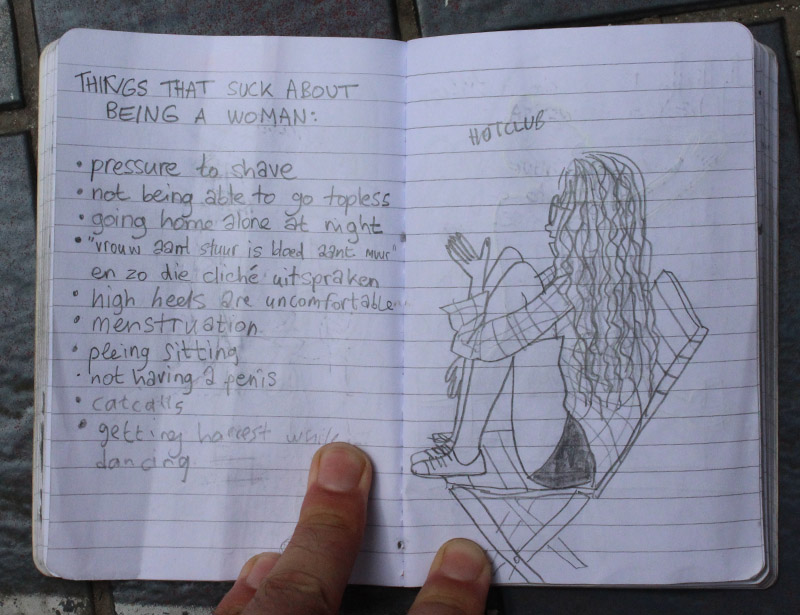 THINGS THAT SUCK ABOUT
BEING A WOMAN:
• pressure to shave
• not being able to go topless
• going home alone at night
• "vrouw aant stuur is bloed aant muur"
en zo die cliché uitspraken
• high heels are uncomfortable
• menstruation
• peeing sitting
• not having a penis
• catcalls
• getting harrest while
dancing
HOTCLUB